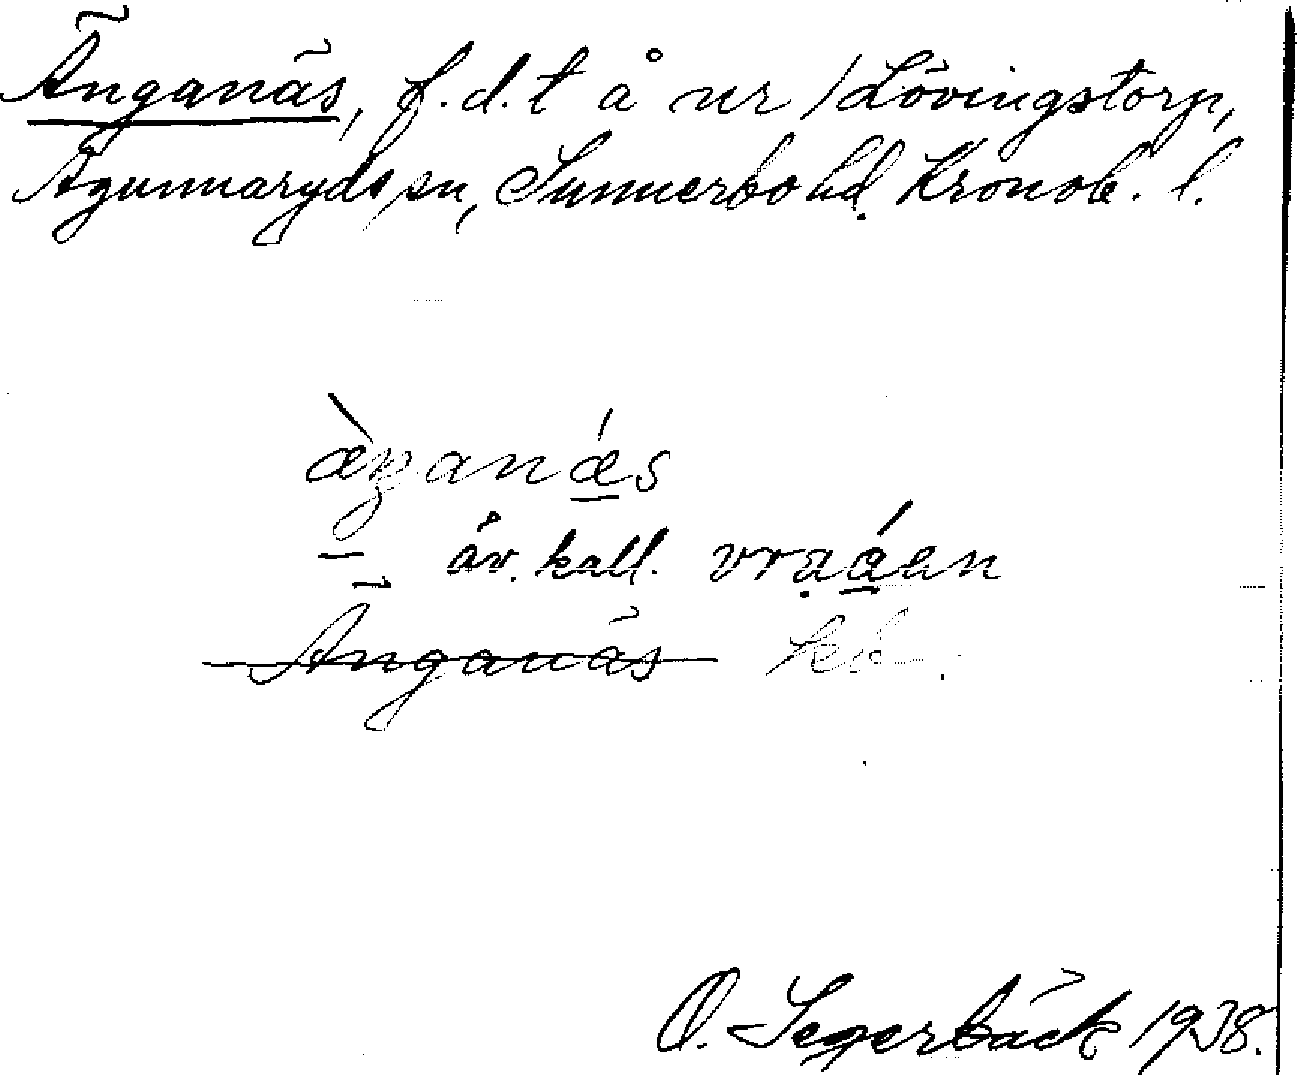 Änganäs, f.d.t å nr 1 Lövingstorp,
Agunnaryds sn, Sunnerbo hd. Kronob. l.
äv. kall.
Änganäs
O. Segerbäck 1938.